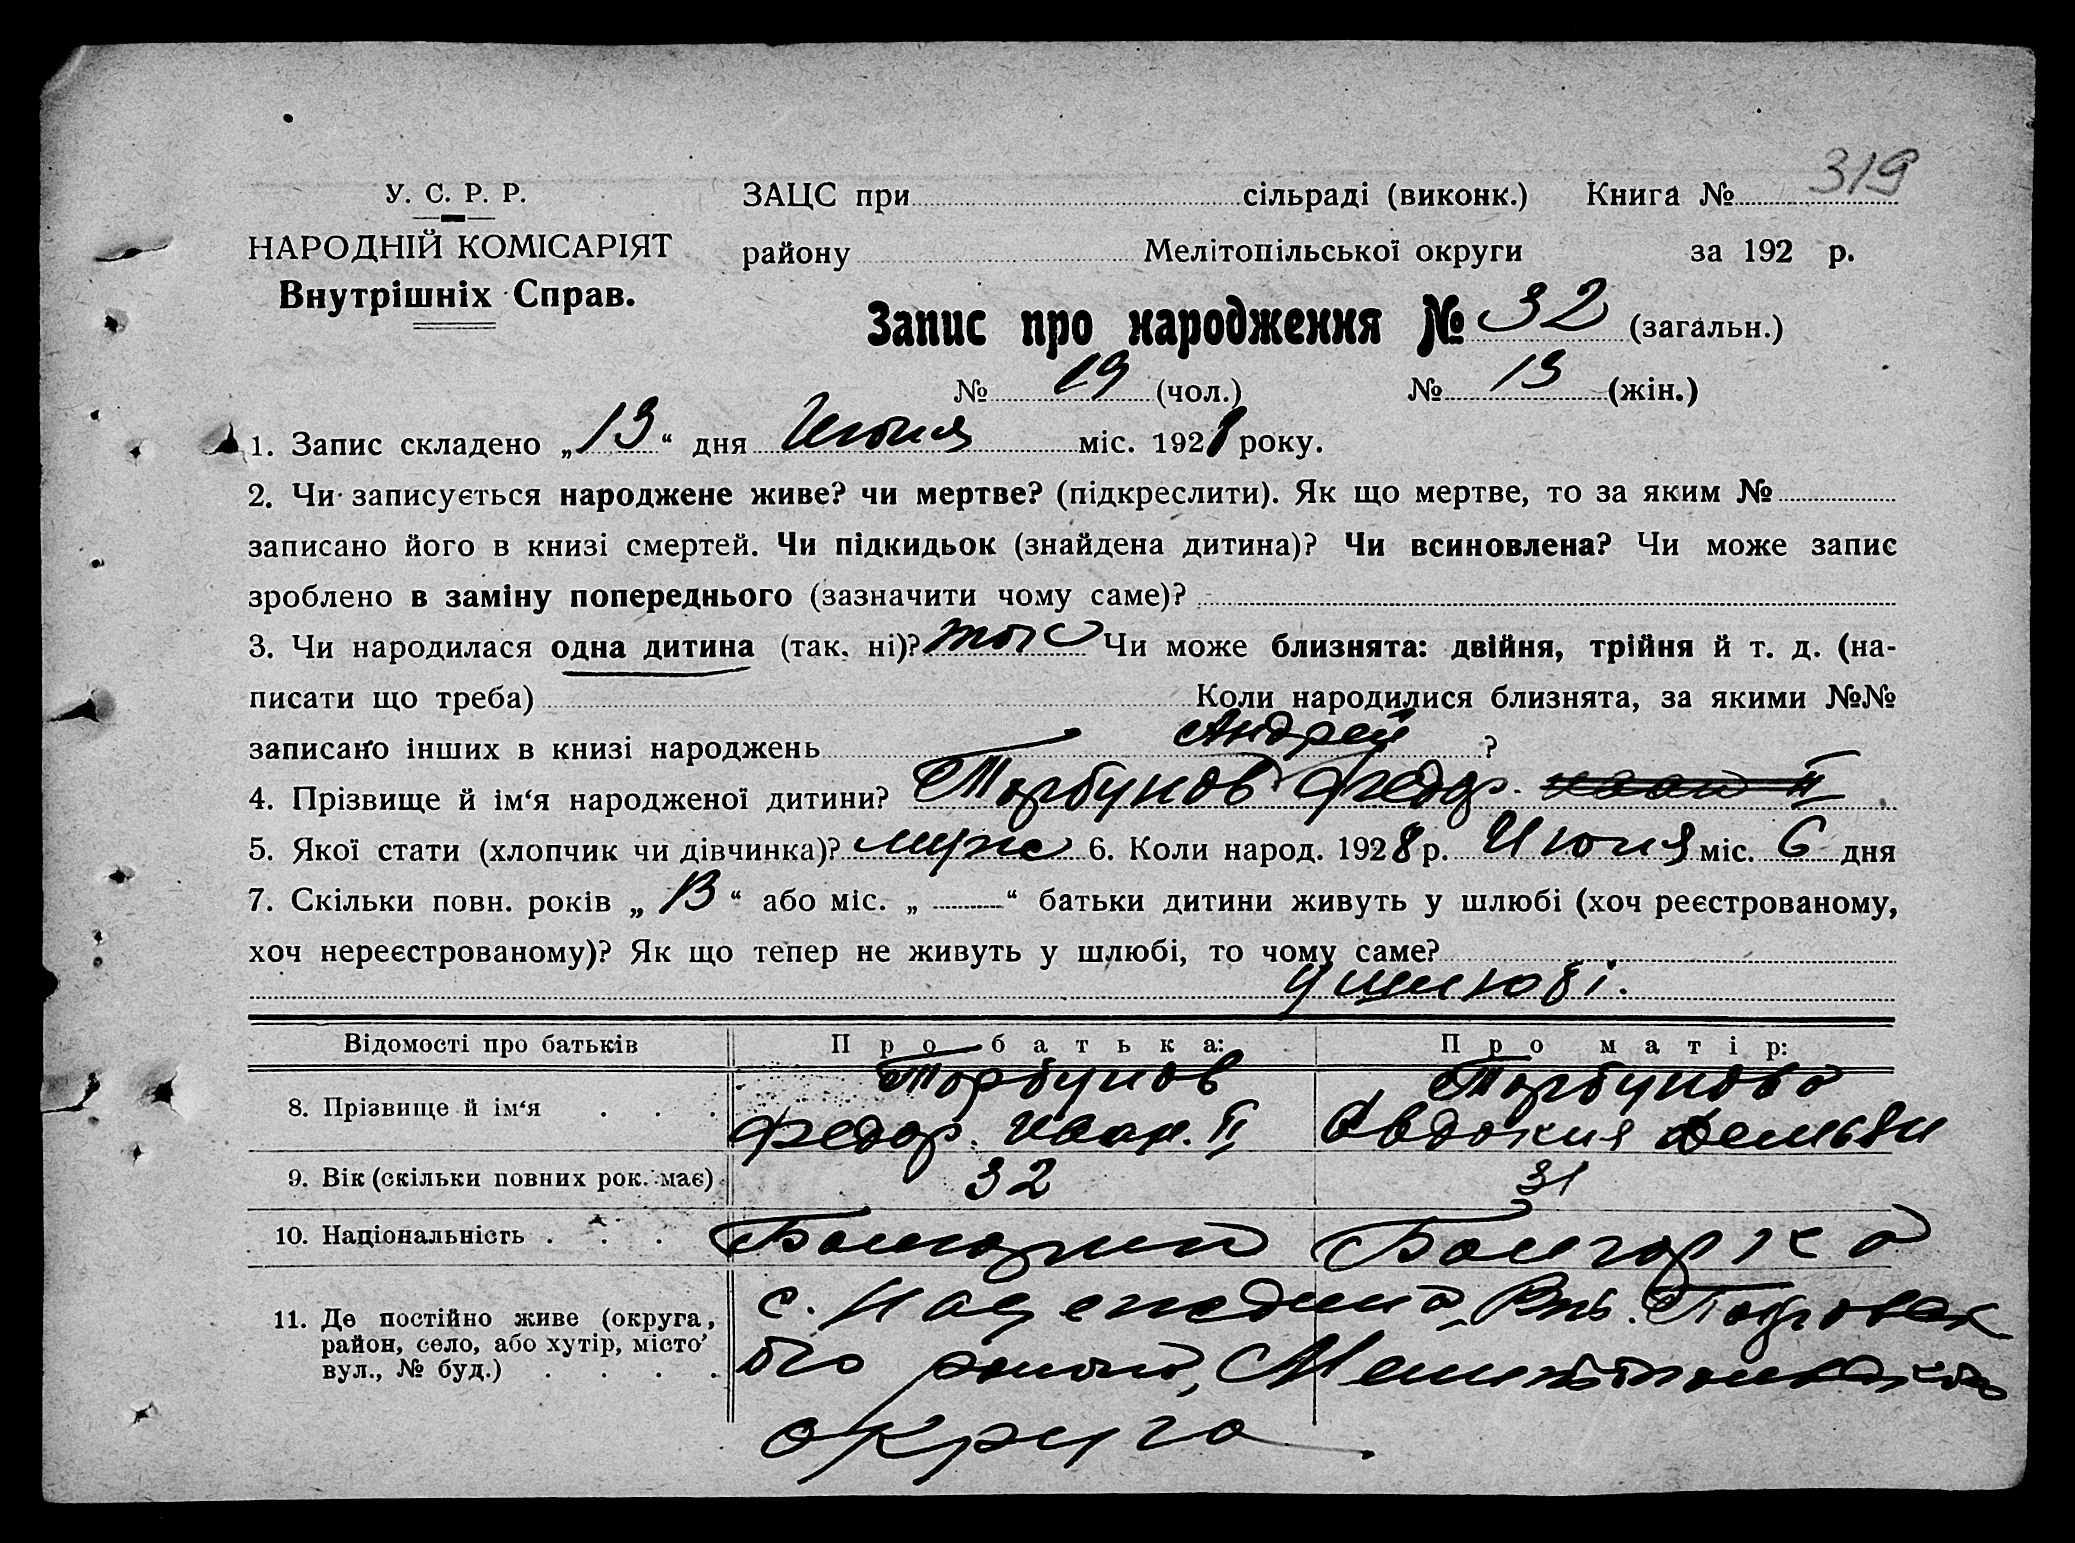 319
У. С. Р. Р.
ЗАЦС при сільраді (виконк.) Книга №
НАРОДНІЙ КОМІСАРІЯТ
району Мелітопільської округи за 192 р.
Внутрішніх Справ.
Запис про народження № 32 (загальн.)
№ 19 (чол.) № 13 (жін.)
1. Запис складено „13“ дня Июня міс. 1928 року.
2. Чи записується народжене живе? чи мертве? (підкреслити). Як що мертве, то за яким №
записано його в книзі смертей. Чи підкидьок (знайдена дитина)? Чи всиновлена? Чи може запис
зроблено в заміну попереднього (зазначити чому саме)?
3. Чи народилася одна дитина (так, ні)? так Чи може близнята: двійня, трійня й т. д. (на-
писати що треба) Коли народилися близнята, за якими №№
записано інших в книзі народжень ?
Андрей
4. Прізвище й ім‘я народженої дитини? Торбунов Федор. Иван II
5. Якої стати (хлопчик чи дівчинка)? муж 6. Коли народ. 1928 р. Июня міс. 6 дня
7. Скільки повн. років „13“ або міс. „ “ батьки дитини живуть у шлюбі (хоч реєстрованому,
хоч нереєстрованому)? Як що тепер не живуть у шлюбі, то чому саме?
у шлюбі.
Відомості про батьків Про батька: Про матір:
8. Прізвище й ім‘я . . . Торбунов Торбунова
Федор. Иван. II Авдокия
9. Вік (скільки повних рок. має) 32 31
10. Національність . . . Болгарин Болгарка
11. Де постійно живе (округа, с.
район, село, або хутір, місто
вул., № буд.) . . . .
округа.